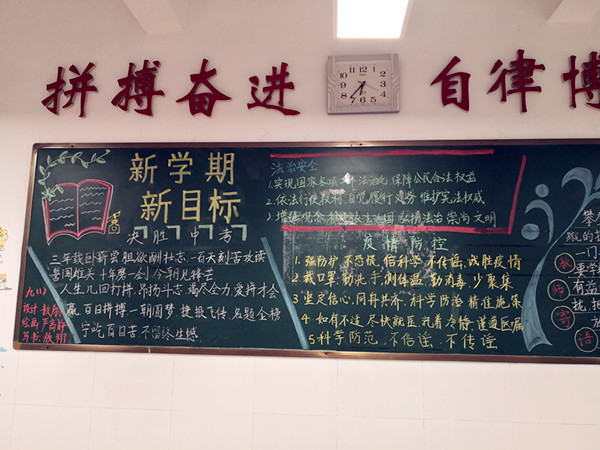 拼搏奋进
自律博
新学期
新目标
决胜中考
三年栈卧薪尝胆欲酬壮志,一百天刻苦攻读
善闯雄关 十年磨一剑 今朝见锋芒
人生几回打拼,昂扬斗志 竭尽全力 爱拼才会
赢 百日拼搏 一朝圆梦 捷报飞传 名题金榜
宁吃百日苦 不留终生憾
法治安全
1.实现国家各项 法治化 保障公民合法权益
2.依法行使权利 自觉履行义务 维护宪法权威
3.增强观念 依法治国 弘扬法治 崇尚文明
疫情防控
1.强防护 不恐慌,信科学 不传谣,战胜疫情
2.戴口罩 勤洗手 测体温 勤消毒 少聚集
3.坚定信心,同舟共济,科学防治 精准施策
4.如有不适 尽快就医 沉着冷静 谨遵医嘱
5.科学防范 不信谣 不传谣
教
师
寄
语
一门
要学
有益